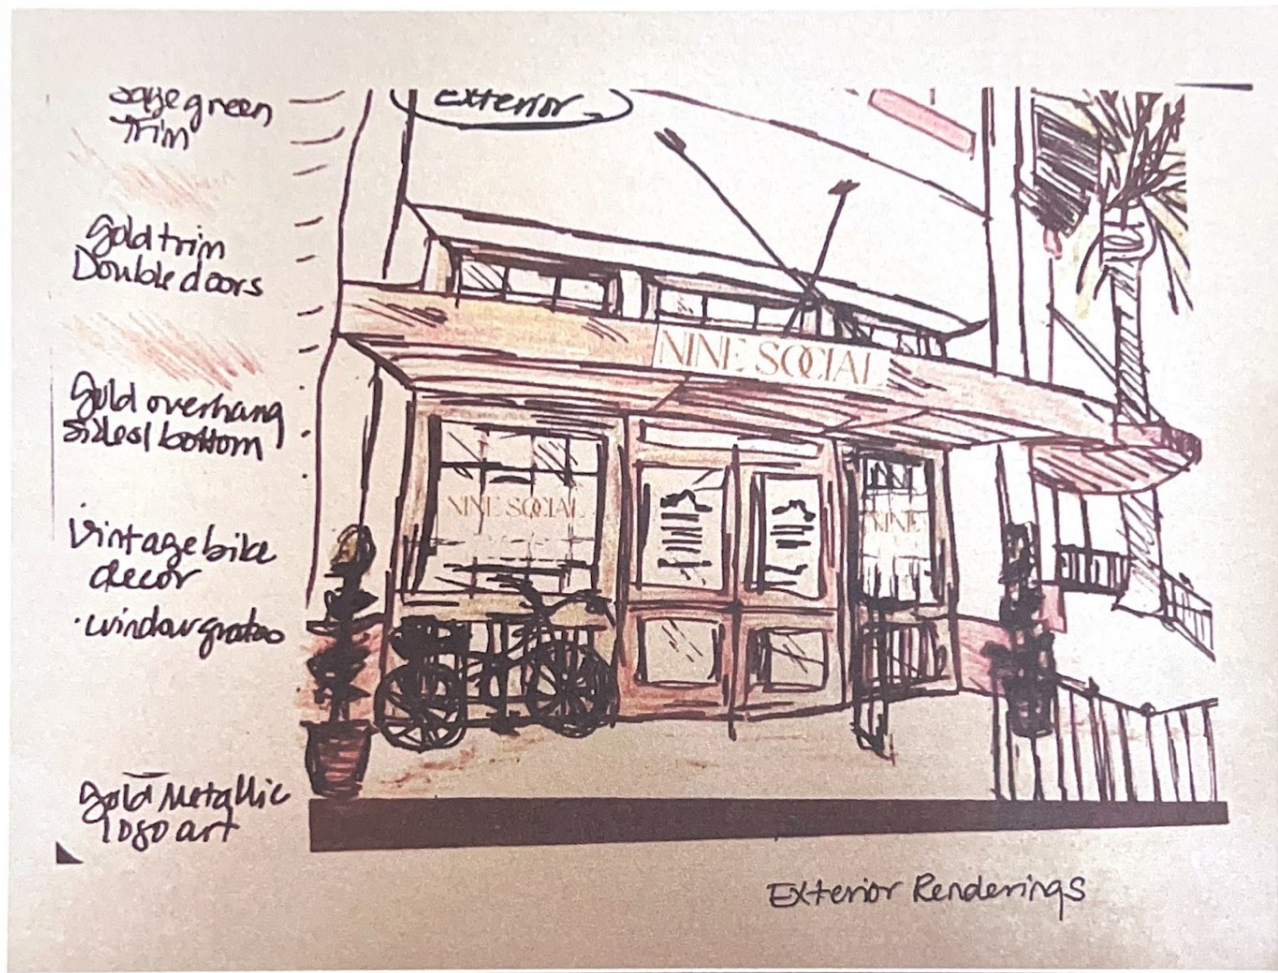 sage green
Trim
Gold trim
Double doors
Gold overhang
sides/bottom
vintage bike
decor
Gold Metallic
logo art
Exterior
NINE SOCIAL
NINE SOCIAL
NINE
Exterior Renderings